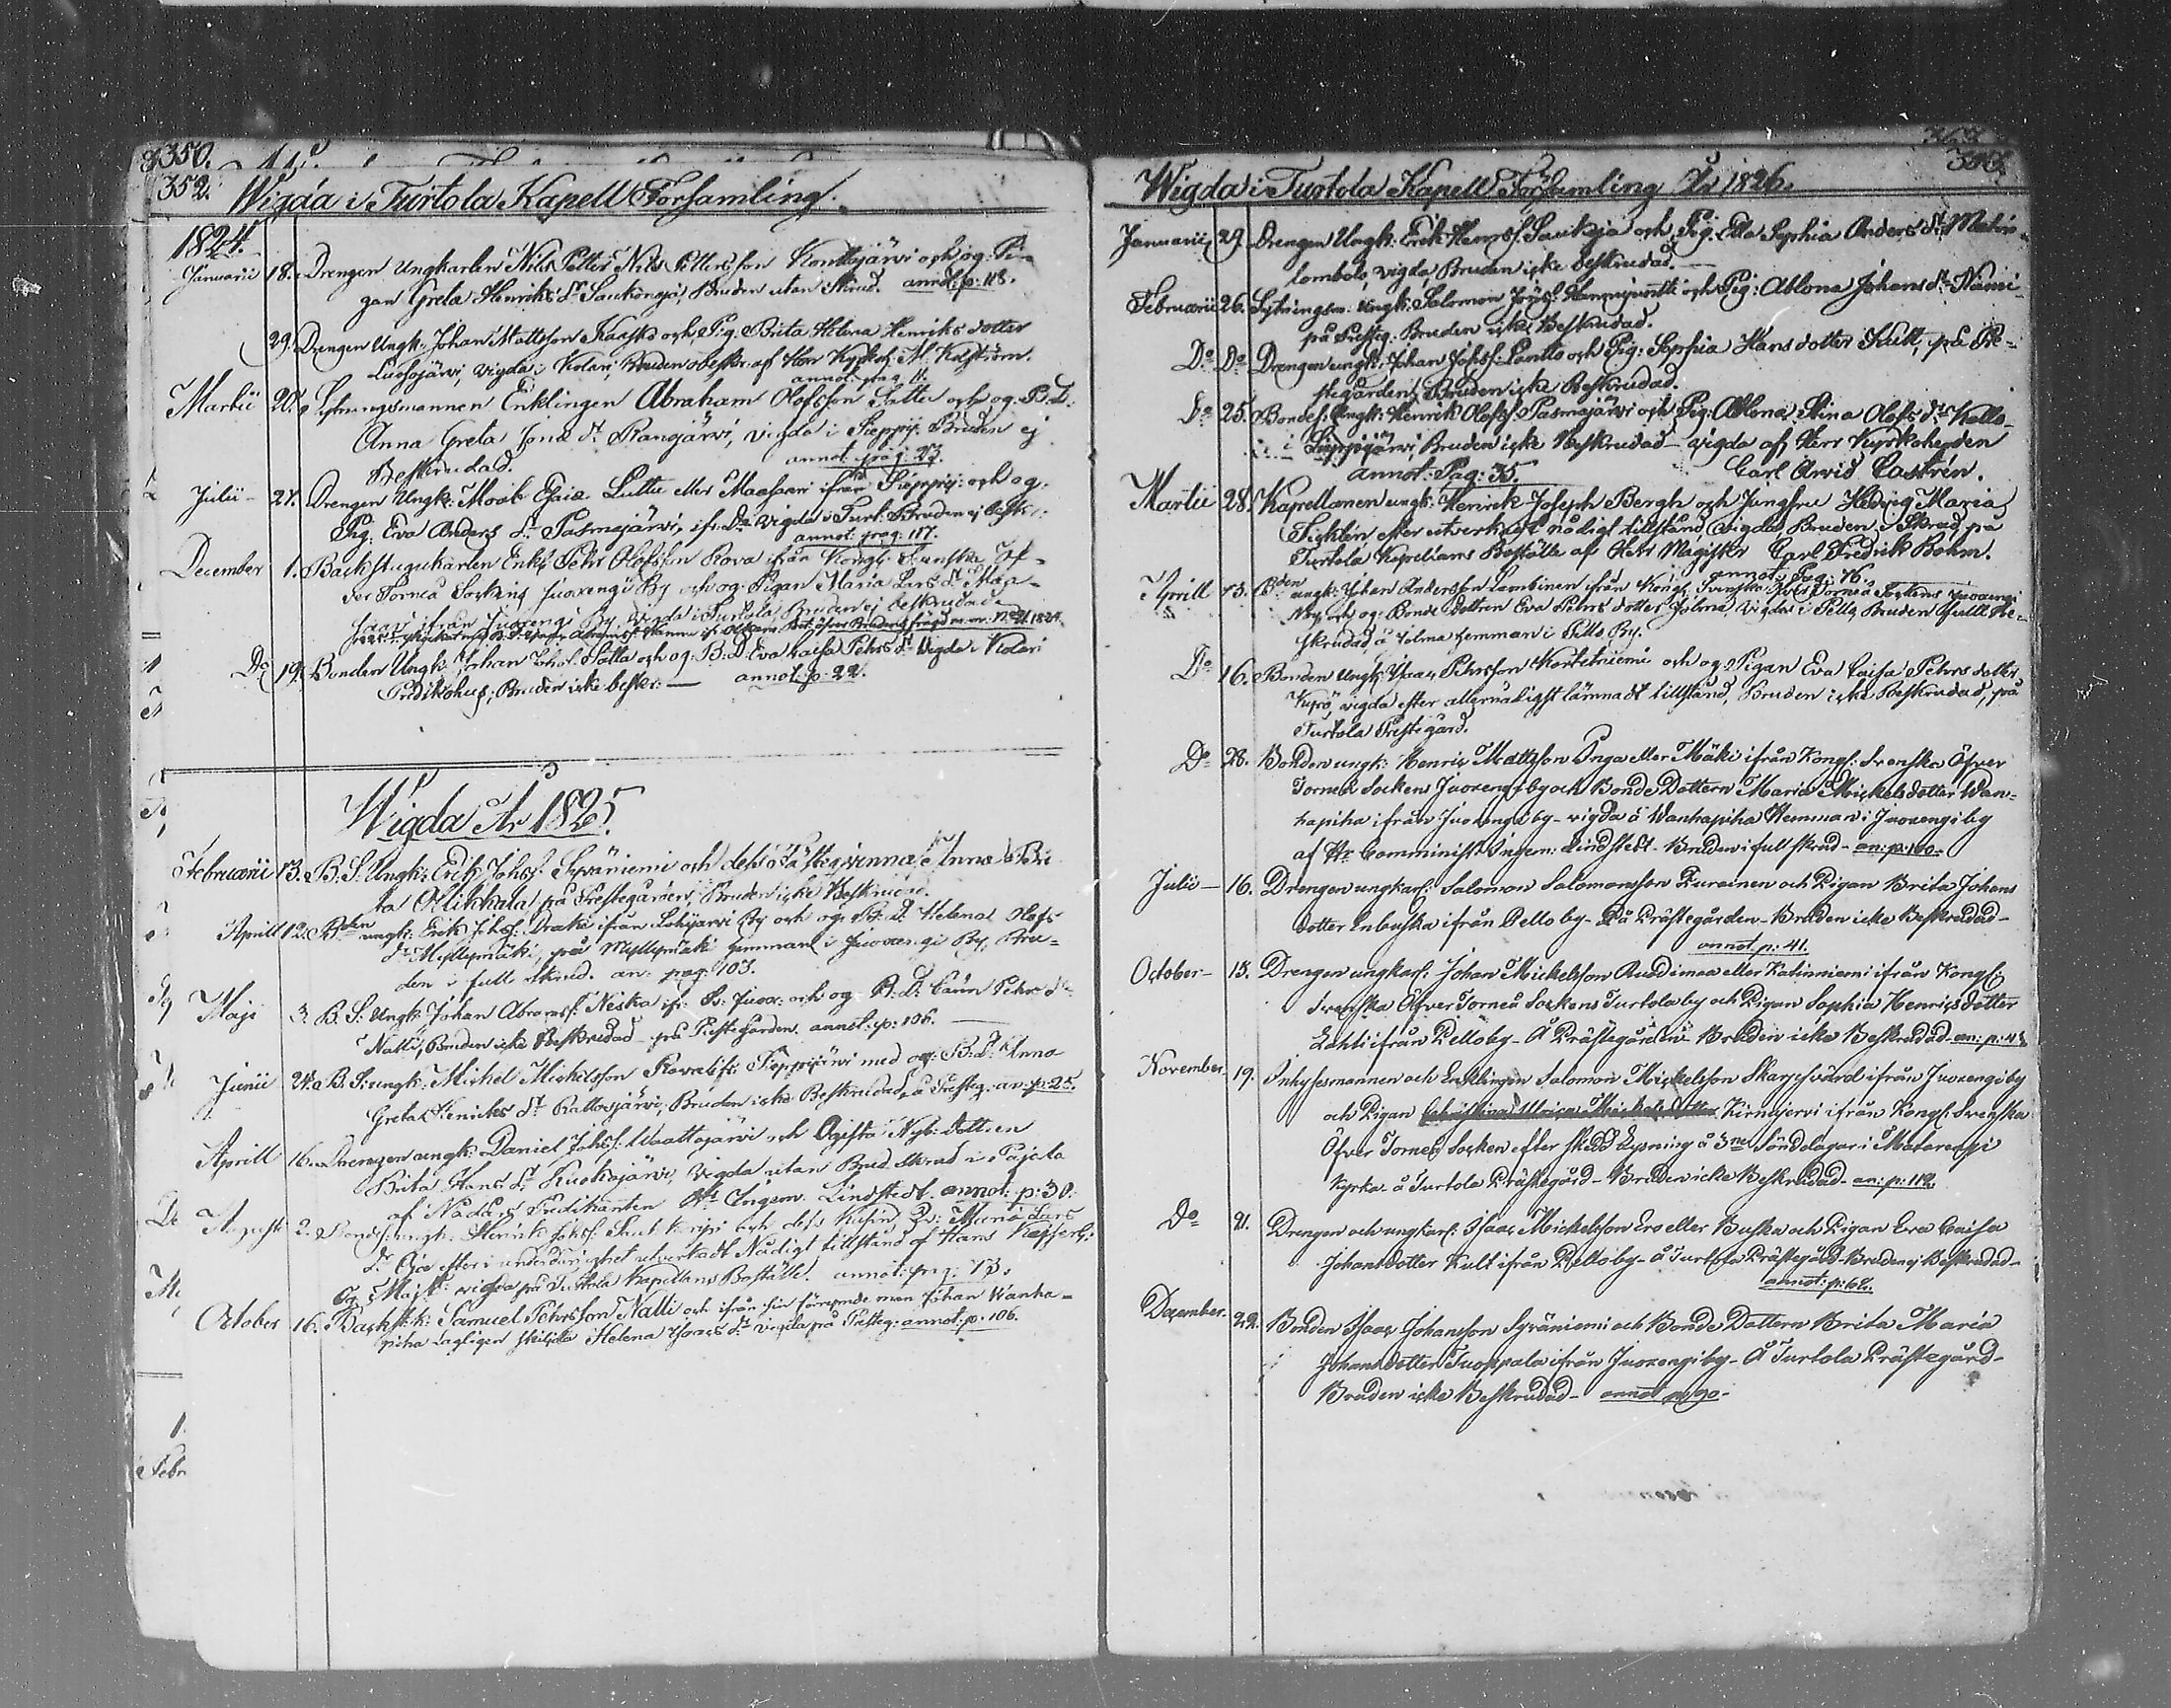 350.
352. Wigda i Turtola Kapell Församling.
1824.
Januarii 18. Drengen Ungkarlen Nils Petter Nils Pettersson Konttajärvi och og: Pi-
gan Greta Henriks dr Saukooja, Bruden utan Skrud. annot: p: 118.
29. Drengen Ungk: Johan Mattsson Kaasko och Pig: Brita Helena Henriks dotter
Luosojärvi, vigda i Kolari, Bruden af Herr Kyrkoh: M. Kaström.
annot: pag. 11.
Martii 20. Enklingen Abraham Olofsson Satta och og. B. D:
Anna Greta Jons dr Rangjärvi, vigda i Sieppij: Bruden ej
Beskrudad. annot: pag: 23.
Julii 27. Drengen Ungk: Moak Esaiæ Luttu eller Maassari ifrån Sieppij: och og.
Pig: Eva Anders dr Pasmajärvi, ifr: Do vigda i Turt: Bruden ej beskr:
annot: pag: 117.
December 1. Backstugukarlen Enkl: Pehr Olofsson Rova ifrån Kongl: Svenska Öf-
ver Torneå Sockens Juoxengi By och og: Pigan Maria Lars dr
ifrån Juoxengi By, vigda i Turtola, Bruden ej beskrudad.
Do 19. Bonden Ungk: Johan Johss: Satta och og: B: D: Eva Caisa Pehrs dr Vigda i Kolari
Predikohus; Bruden icke beskr: — annot: p: 22.
Wigda År 1825.
Februarii 13. B: S: Ungk: Erik Johss: Syväniemi och dess Fästeqvinna Anna Bri
ta Mikkala, på Prestegården, Bruden icke Beskrudad.
Aprill 12. Bden ungk: Erik Johss: Drake ifrån Lohijärvi By och og: B: D: Helena Olofs
dr Myllymäki, på Myllymäki hemman i Juoxengi By, Bru-
den i full skrud. an: pag: 103.
Maji 3. B: S: Ungk: Johan Abramss: Niska ifr: Sv: Juox: och og B: D: Carin Pehrs dr
Natti, Bruden icke Beskrudad på Prestegården. annot: p: 106. —
Junii 24. B: S: ungk: Michel Mickelsson Rova ifr: Sieppijärvi med og: B: D: Anna
Greta Henriks dr Rattosjärvi, Bruden icke Beskrudad, å Presteg: an: p: 25.
Aprill 16. Drengen ungk: Daniel Johss: Waattojärvi och Ogifta Nyb: dottren
Brita Hans dr Ruokojärvi, Vigda utan Brudskrud i Pajala
af Nådårs Predikanten Hr Ingem. Lindstedt. annot: p: 30.
Augusti 2. Bondes: ungk: Henrik Johss: och dess Kusin, Pi: Maria Lars
dr Oja efter i underdånighet utverkadt Nådigt tillstånd af Hans Kejserl:
Maj:t vigda på Turtola Kapellans Boställe. annot: pag: 73.
October 16. Backst:k: Samuel Pehrsson Natti och ifrån sin förrymde man Johan Wanha-
piha Lagligen skilgda Helena Isaacs dr vigda på Presteg: annot: p: 106.
Wigda i Turtola Kapell Församling År 1826.
Januarii 29. Drengen Ungk: Erik Hanss: Saukoja och Pig: Ella Sophia Anders dr
lombolo, vigda, Bruden icke beskrudad.
Februarii 26. Sytningsm: Ungk: Salomon och Pig: Ablona Johans dr
på Presteg: Bruden icke Beskrudad.
Do Do Drengen ungk: Johan Johss: Lantto och Pig: Sophia Hans dotter Kult, på Pre-
stegården, Bruden icke Beskrudad.
Do 25. Bondes: Ungk: Henrik Olofss: Pasmajärvi och Pig: Ablona Stina Olofs dr Kallo
i Sieppijärvi, Bruden icke Beskrudad – vigda af Herr Kyrkoherden
annot: Pag: 35. Carl Arvid Castrén.
Martii 28. Kapellanen ungk: Henrik Joseph Bergh och Jungfru Hedvig Maria
efter utverkadt nådigt tillstånd, vigda, Bruden i Skrud, på
Turtola Kapellans Boställe af Herr Magister Carl Fredrik Bohm.
annot: Pag: 76.
Aprill 13. Bden ungk: Johan Andersson Lambinen ifrån Kongl: Svenska Öfver Torneå Sockens Juoxengi
By, och og: Bonde dottren Eva Pehrs dotter Jolma, vigda i Pello, Bruden i full Be-
skrudad å Jolma hemman i Pello By.
Do 16. Bonden Ungk: Isaac Pehrsson Korteniemi och og: Pigan Eva Caisa Pehrs dotter
Kyrö, vigda efter allernådigst lämnadt tillstånd, Bruden icke Beskrudad, på
Turtola Prestegård.
Do 28. Bonden ungk: Henric Mattsson Inga eller Mäki ifrån Kongl: Svenska Öfver
Torneå Sockens Juoxengi by och Bonde Dottern Maria Mickelsdotter Wan-
hapiha ifrån Juoxengi by – vigda å Wanhapiha Hemman i Juoxengi by
af Hr Comminist: Ingem: Lindstedt – Bruden i full skrud – an: p: 100.
Julii – 16. Drengen ungkarl: Salomon Salomonsson Zurainen och Pigan Brita Johans
dotter Enbuska ifrån Pello by – På Prästegården – Bruden icke Beskrudad –
annot: p: 41.
October – 15. Drengen ungkarl: Johan Mickelsson Ruudimaa eller Katinniemi ifrån Kongl:
Svenska Öfver Torneå Sockens Turtola by och Pigan Sophia Henrics dotter
Lahti ifrån Pello by – Å Prästegården – Bruden icke Beskrudad – an: p: 48.
November. 19. Inhysesmannen och Enklingen Salomon Mickelsson Skarpsvärd ifrån Juoxengi by
och Pigan Christina Ulrica Mickels dotter Kirnujervi ifrån Kongl: Svenska
Öfver Torneå Socken efter skedd Lysning å 3ne Sönddagar i Matarengi
Kyrka – å Turtola Prästegård – Bruden icke Beskrudad – an: p: 112.
Do 21. Drengen och ungkarl: Isaac Mickelsson Ero eller Buska och Pigan Eva Caisa
Johansdotter Kult ifrån Pello by – å Turtola Prästegård – Bruden ej Beskrudad –
annot: p: 62.
December. 22. Bonden Isaac Johansson Syväniemi och Bonde Dottern Brita Maria
Johansdotter Tuoppala ifrån Juoxengi by – Å Turtola Prästegård –
Bruden icke Beskrudad – annot p: 90 –